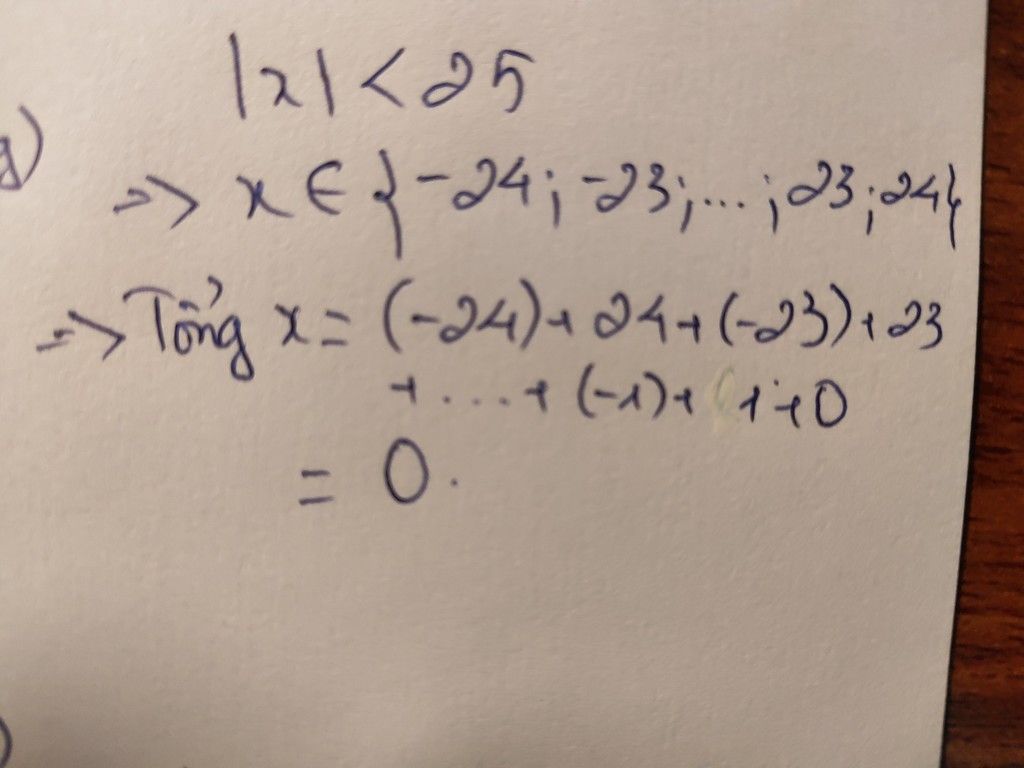 |x| < 25
g)
=> x ∈ {-24; -23; ...; 23; 24}
=> Tổng x = (-24) + 24 + (-23) + 23
+ .... + (-1) + 1 + 0
= 0.